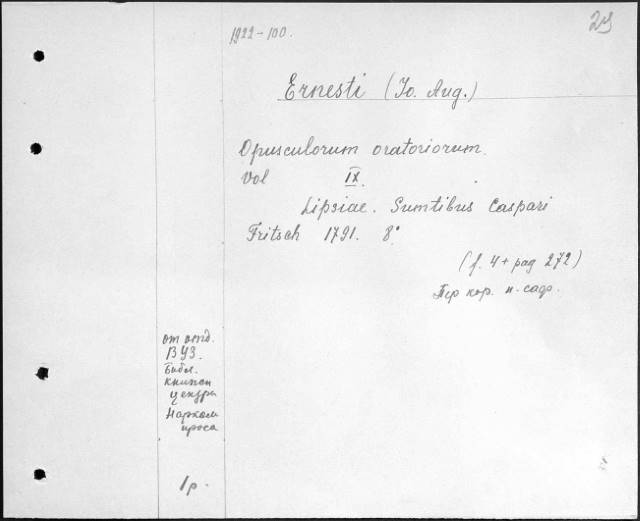 1922-100.
29
Ernesti (Io. Aug.)
Opusculorum oratoriorum.
Vol IX.
Lipsiae. Sumtibus Caspari
Fritsch 1791. 8°
(f. 4 + pag 272)
Пер кор. п. саф.
от отд.
ВУЗ.
Библ.
книжн
центра
Нарком
проса
1р.